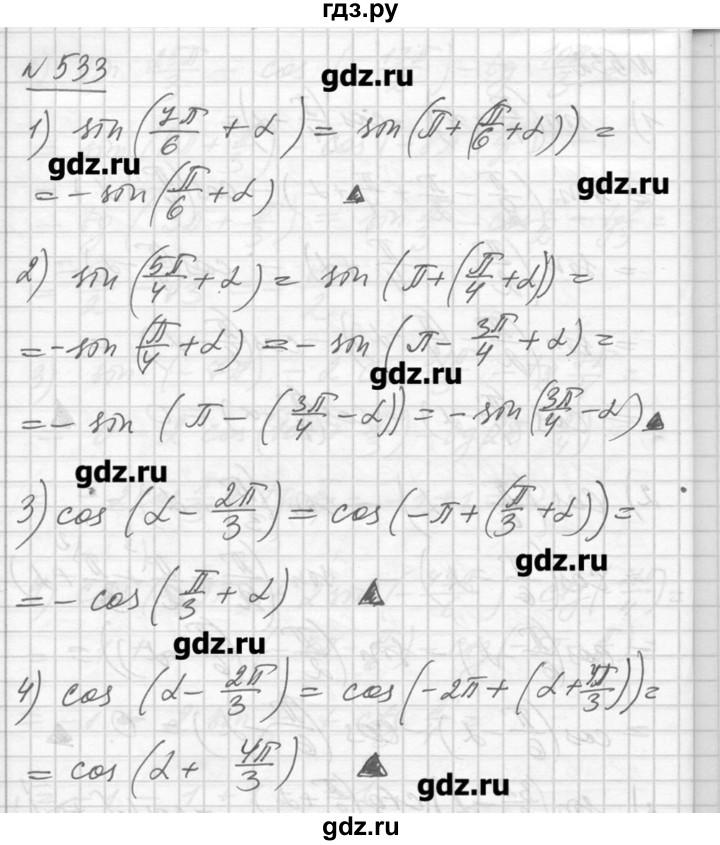 гдз.ру
N 533
gdz.ru
1) sin(7π/6 + α) = sin(π + (π/6 + α)) =
gdz.ru
gdz.ru
= - sin(π/6 + α) ▲
2) sin(5π/4 + α) = sin(π + (π/4 + α)) =
= - sin(π/4 + α) = - sin(π - 3π/4 + α) =
gdz.ru
= - sin(π - (3π/4 - α)) = - sin(3π/4 - α) ▲
gdz.ru
3) cos(α - 2π/3) = cos(-π + (π/3 + α)) =
gdz.ru
= - cos(π/3 + α) ▲
gdz.ru
4) cos(α - 2π/3) = cos(-2π + (α + 4π/3)) =
= cos(α + 4π/3) ▲
gdz.ru
gdz.ru